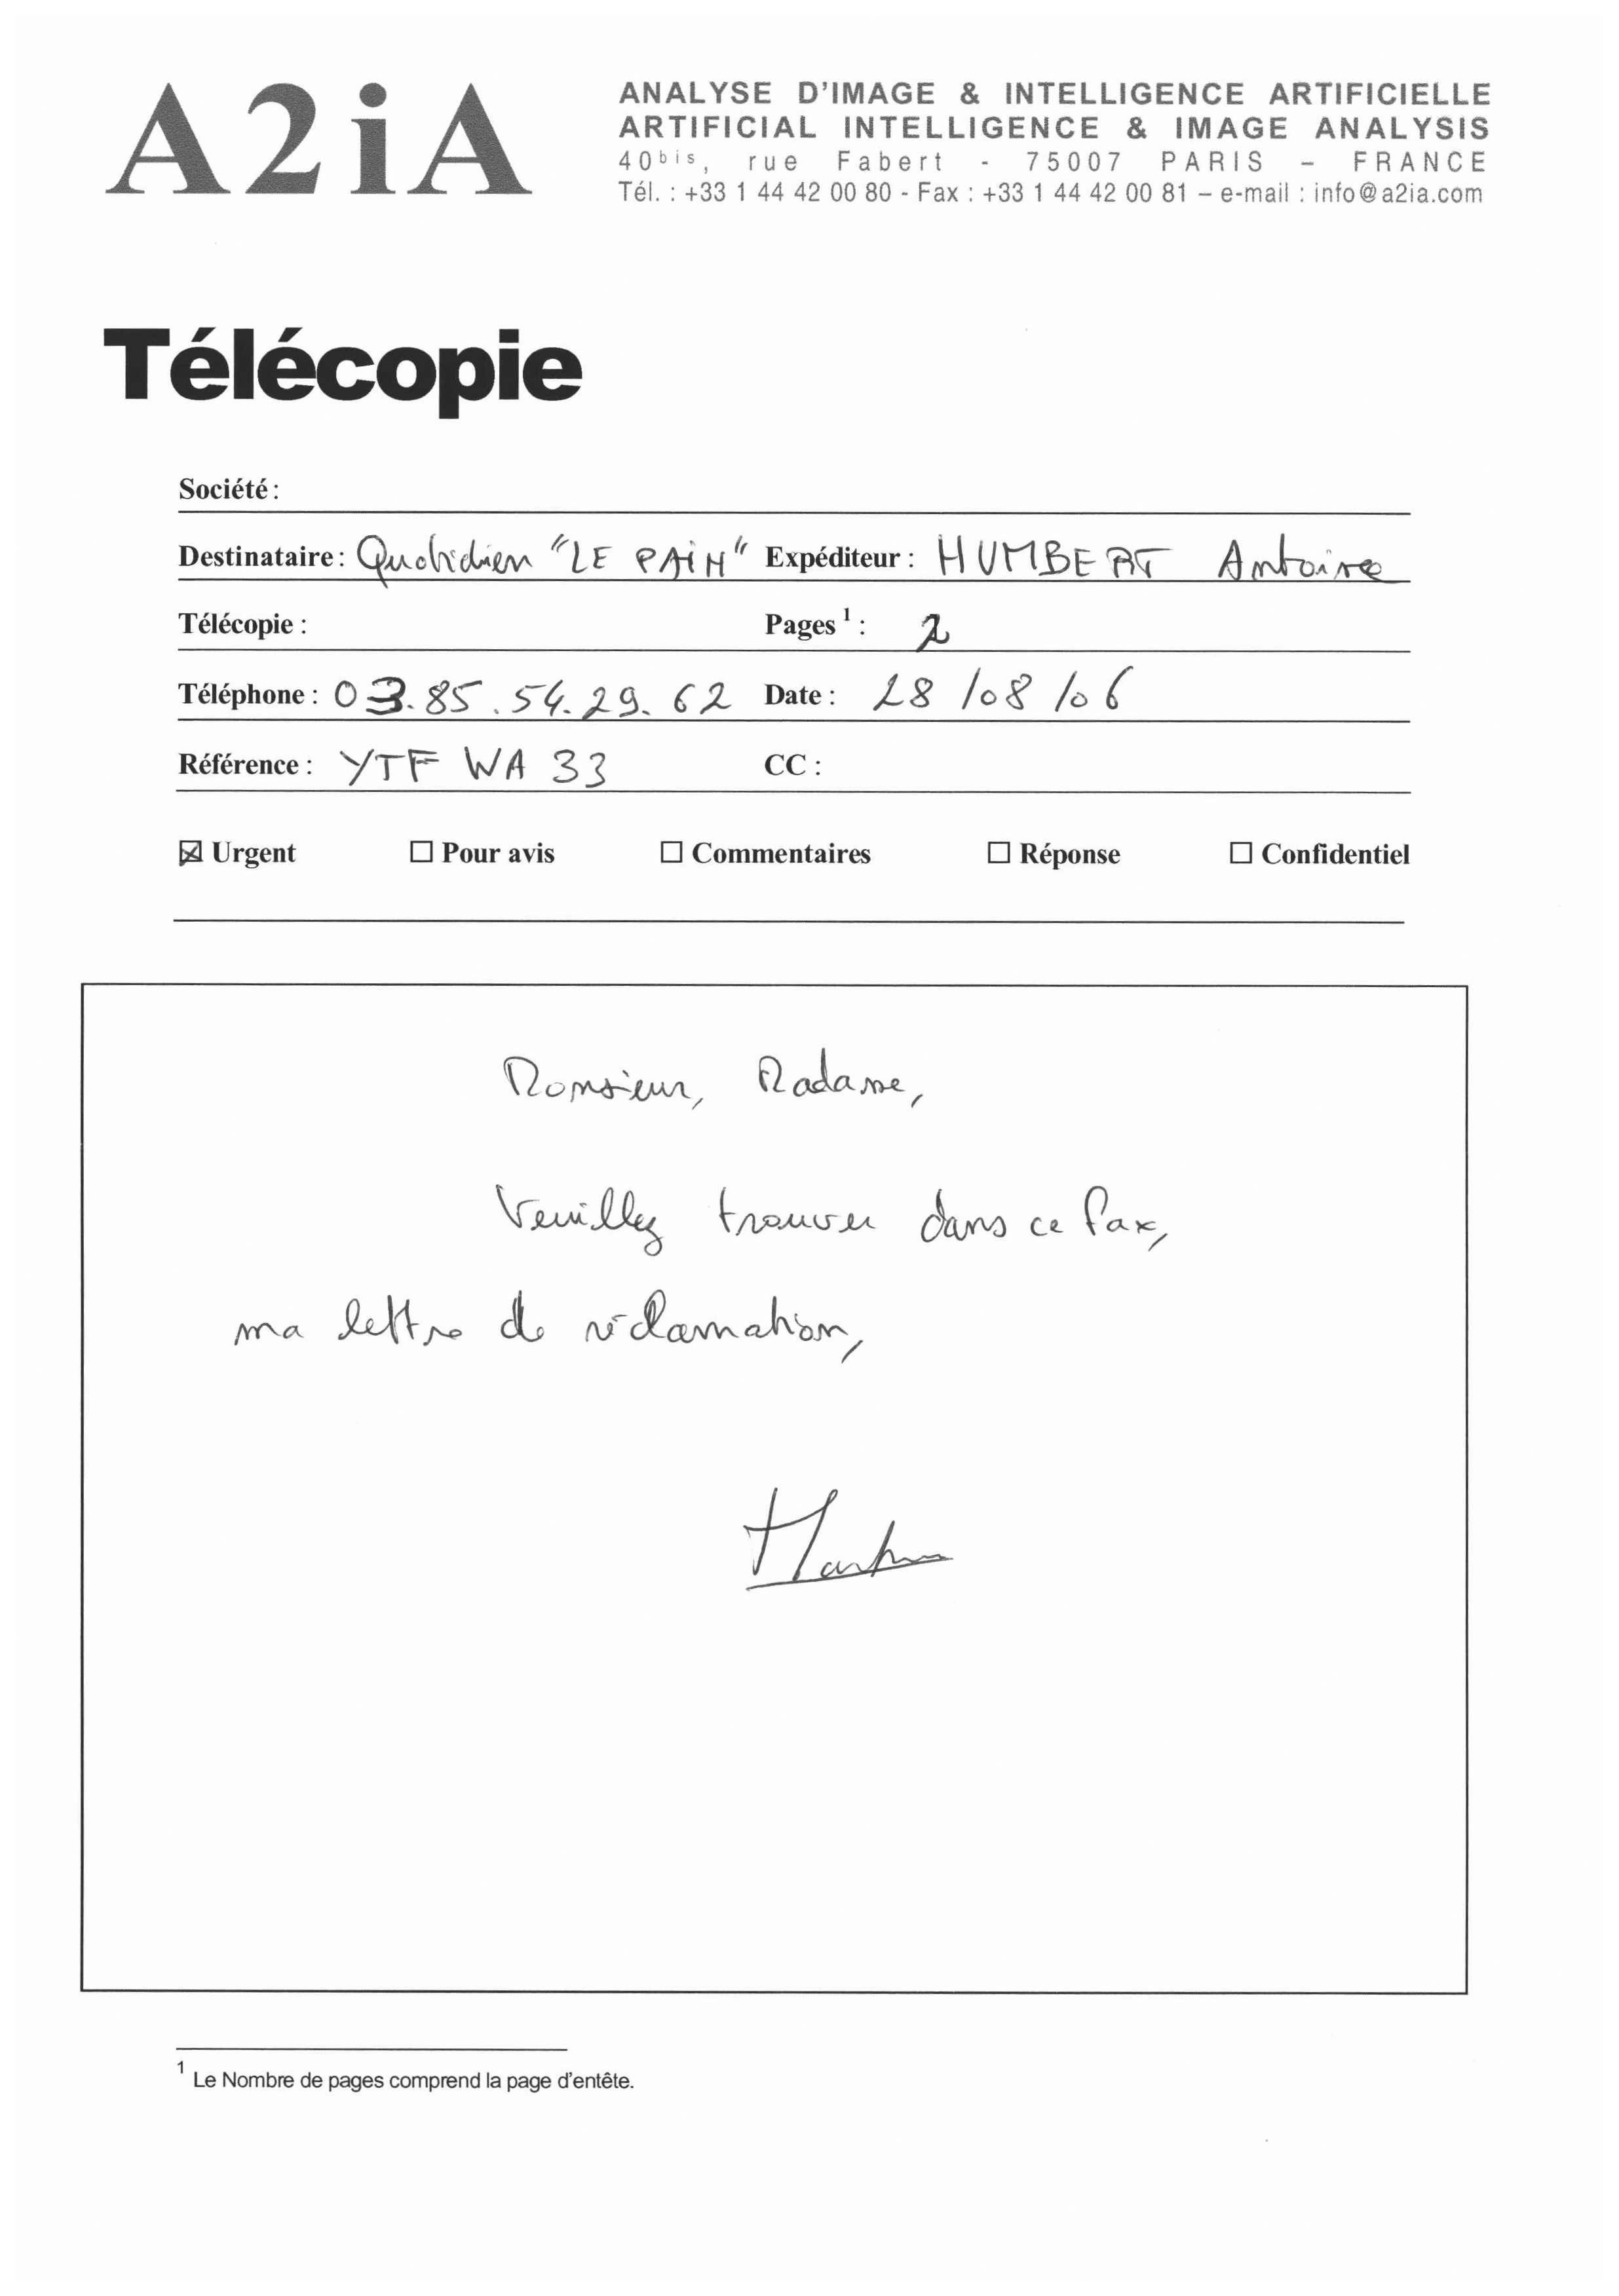 A2iA
ANALYSE D'IMAGE & INTELLIGENCE ARTIFICIELLE
ARTIFICIAL INTELLIGENCE & IMAGE ANALYSIS
40bis, rue Fabert - 75007 PARIS – FRANCE
Tél. : +33 1 44 42 00 80 - Fax : +33 1 44 42 00 81 – e-mail : info@a2ia.com
Télécopie
Société :
Destinataire : Quotidien "LE PAIN" Expéditeur : HUMBERT Antoine
Télécopie : Pages 1 : 2
Téléphone : 03.85.54.29.62 Date : 28/08/06
Référence : YTF WA 33 CC :
☒ Urgent ☐ Pour avis ☐ Commentaires ☐ Réponse ☐ Confidentiel
Monsieur, Madame,
Veuillez trouver dans ce fax,
ma lettre de réclamation,
1 Le Nombre de pages comprend la page d'entête.